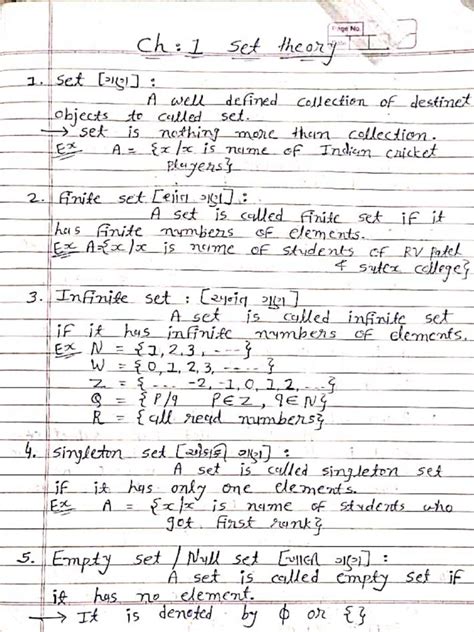 Page No.
Ch : 1 Set theory
1. Set [ગણ] :
A well defined collection of destinct
objects to called set.
→ set is nothing more than collection.
Ex A = {x/x is name of Indian cricket
players}
2. Finite set [સાંત ગણ] :
A set is called finite set if it
has finite numbers of elements.
Ex A={x/x is name of students of RV Patel
& sutex college}
3. Infinite set : [અનંત ગણ]
A set is called infinite set
if it has infinite numbers of elements.
Ex N = {1,2,3, ----}
W = {0,1,2,3, -----}
Z = {... -2,-1,0,1,2,...}
Q = {P/q P∈Z, q∈N}
R = {all read numbers}
4. singleton set [એકાકી ગણ] :
A set is called singleton set
if it has only one elements.
Ex A = {x/x is name of students who
got first rank}
5. Empty set / Null set [ખાલી ગણ] :
A set is called empty set if
it has no element.
→ It is denoted by ϕ or {}